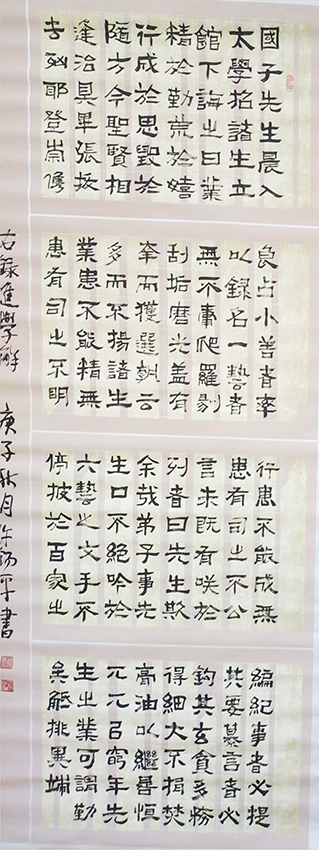 國子先生晨入
太學招諸生立
館下誨之曰業
精於勤荒於嬉
行成於思毀於
隨方今聖賢相
逢治具畢張拔
去凶邪登崇俊
良占小善者率
以錄名一藝者
無不庸爬羅剔
刮垢磨光蓋有
幸而獲選孰云
多而不揚諸生
業患不能精無
患有司之不明
行患不能成無
患有司之不公
言未既有咲於
列者曰先生欺
余哉弟子事先
生口不絕吟於
六藝之文手不
停披於百家之
編紀事者必提
其要纂言者必
鈎其玄貪多務
得細大不捐焚
膏油以繼晷恒
兀兀以窮年先
生之業可謂勤
矣觝排異端
右錄進學解 庚子秋月許錫平書